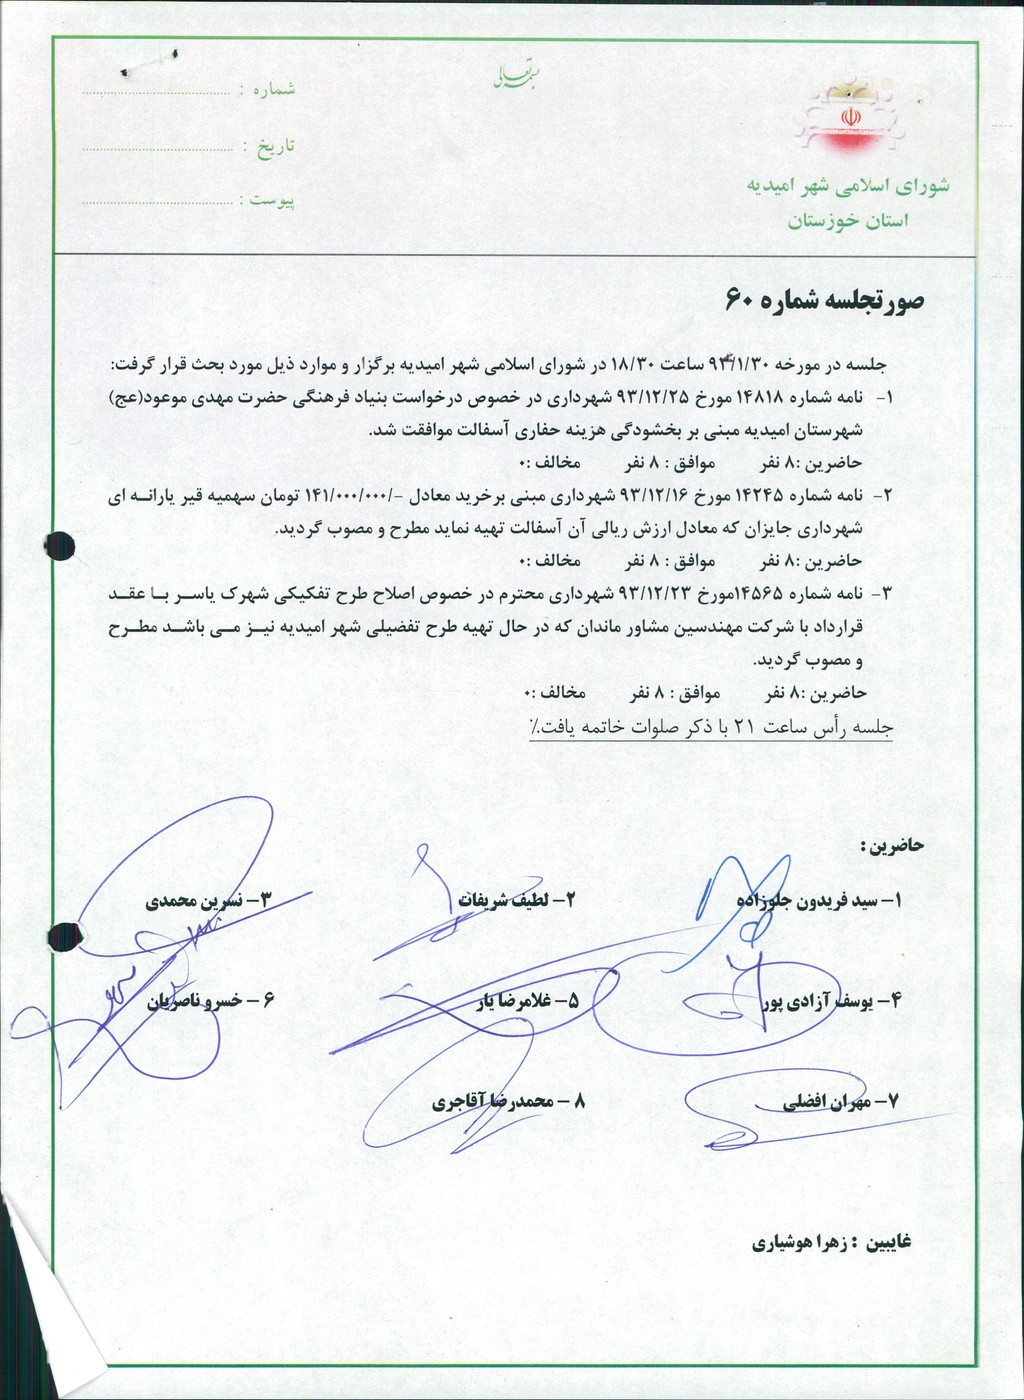 بسمه تعالی
شماره :
تاریخ :
پیوست :
شورای اسلامی شهر امیدیه
استان خوزستان
صورتجلسه شماره ۶۰
جلسه در مورخه ۹۴/۱/۳۰ ساعت ۱۸/۳۰ در شورای اسلامی شهر امیدیه برگزار و موارد ذیل مورد بحث قرار گرفت:
۱- نامه شماره ۱۴۸۱۸ مورخ ۹۳/۱۲/۲۵ شهرداری در خصوص درخواست بنیاد فرهنگی حضرت مهدی موعود(عج)
شهرستان امیدیه مبنی بر بخشودگی هزینه حفاری آسفالت موافقت شد.
حاضرین :۸ نفر موافق : ۸ نفر مخالف :۰
۲- نامه شماره ۱۴۲۴۵ مورخ ۹۳/۱۲/۱۶ شهرداری مبنی برخرید معادل -/۱۴۱/۰۰۰/۰۰۰ تومان سهمیه قیر یارانه ای
شهرداری جایزان که معادل ارزش ریالی آن آسفالت تهیه نماید مطرح و مصوب گردید.
حاضرین :۸ نفر موافق : ۸ نفر مخالف :۰
۳- نامه شماره ۱۴۵۶۵مورخ ۹۳/۱۲/۲۳ شهرداری محترم در خصوص اصلاح طرح تفکیکی شهرک یاسر با عقد
قرارداد با شرکت مهندسین مشاور ماندان که در حال تهیه طرح تفضیلی شهر امیدیه نیز می باشد مطرح
و مصوب گردید.
حاضرین :۸ نفر موافق : ۸ نفر مخالف :۰
جلسه رأس ساعت ۲۱ با ذکر صلوات خاتمه یافت.٪
حاضرین :
۱- سید فریدون جلوزاده ۲- لطیف شریفات ۳- نسرین محمدی
۴- یوسف آزادی پور ۵- غلامرضا یار ۶- خسرو ناصریان
۷- مهران افضلی ۸- محمدرضا آقاجری
غایبین : زهرا هوشیاری